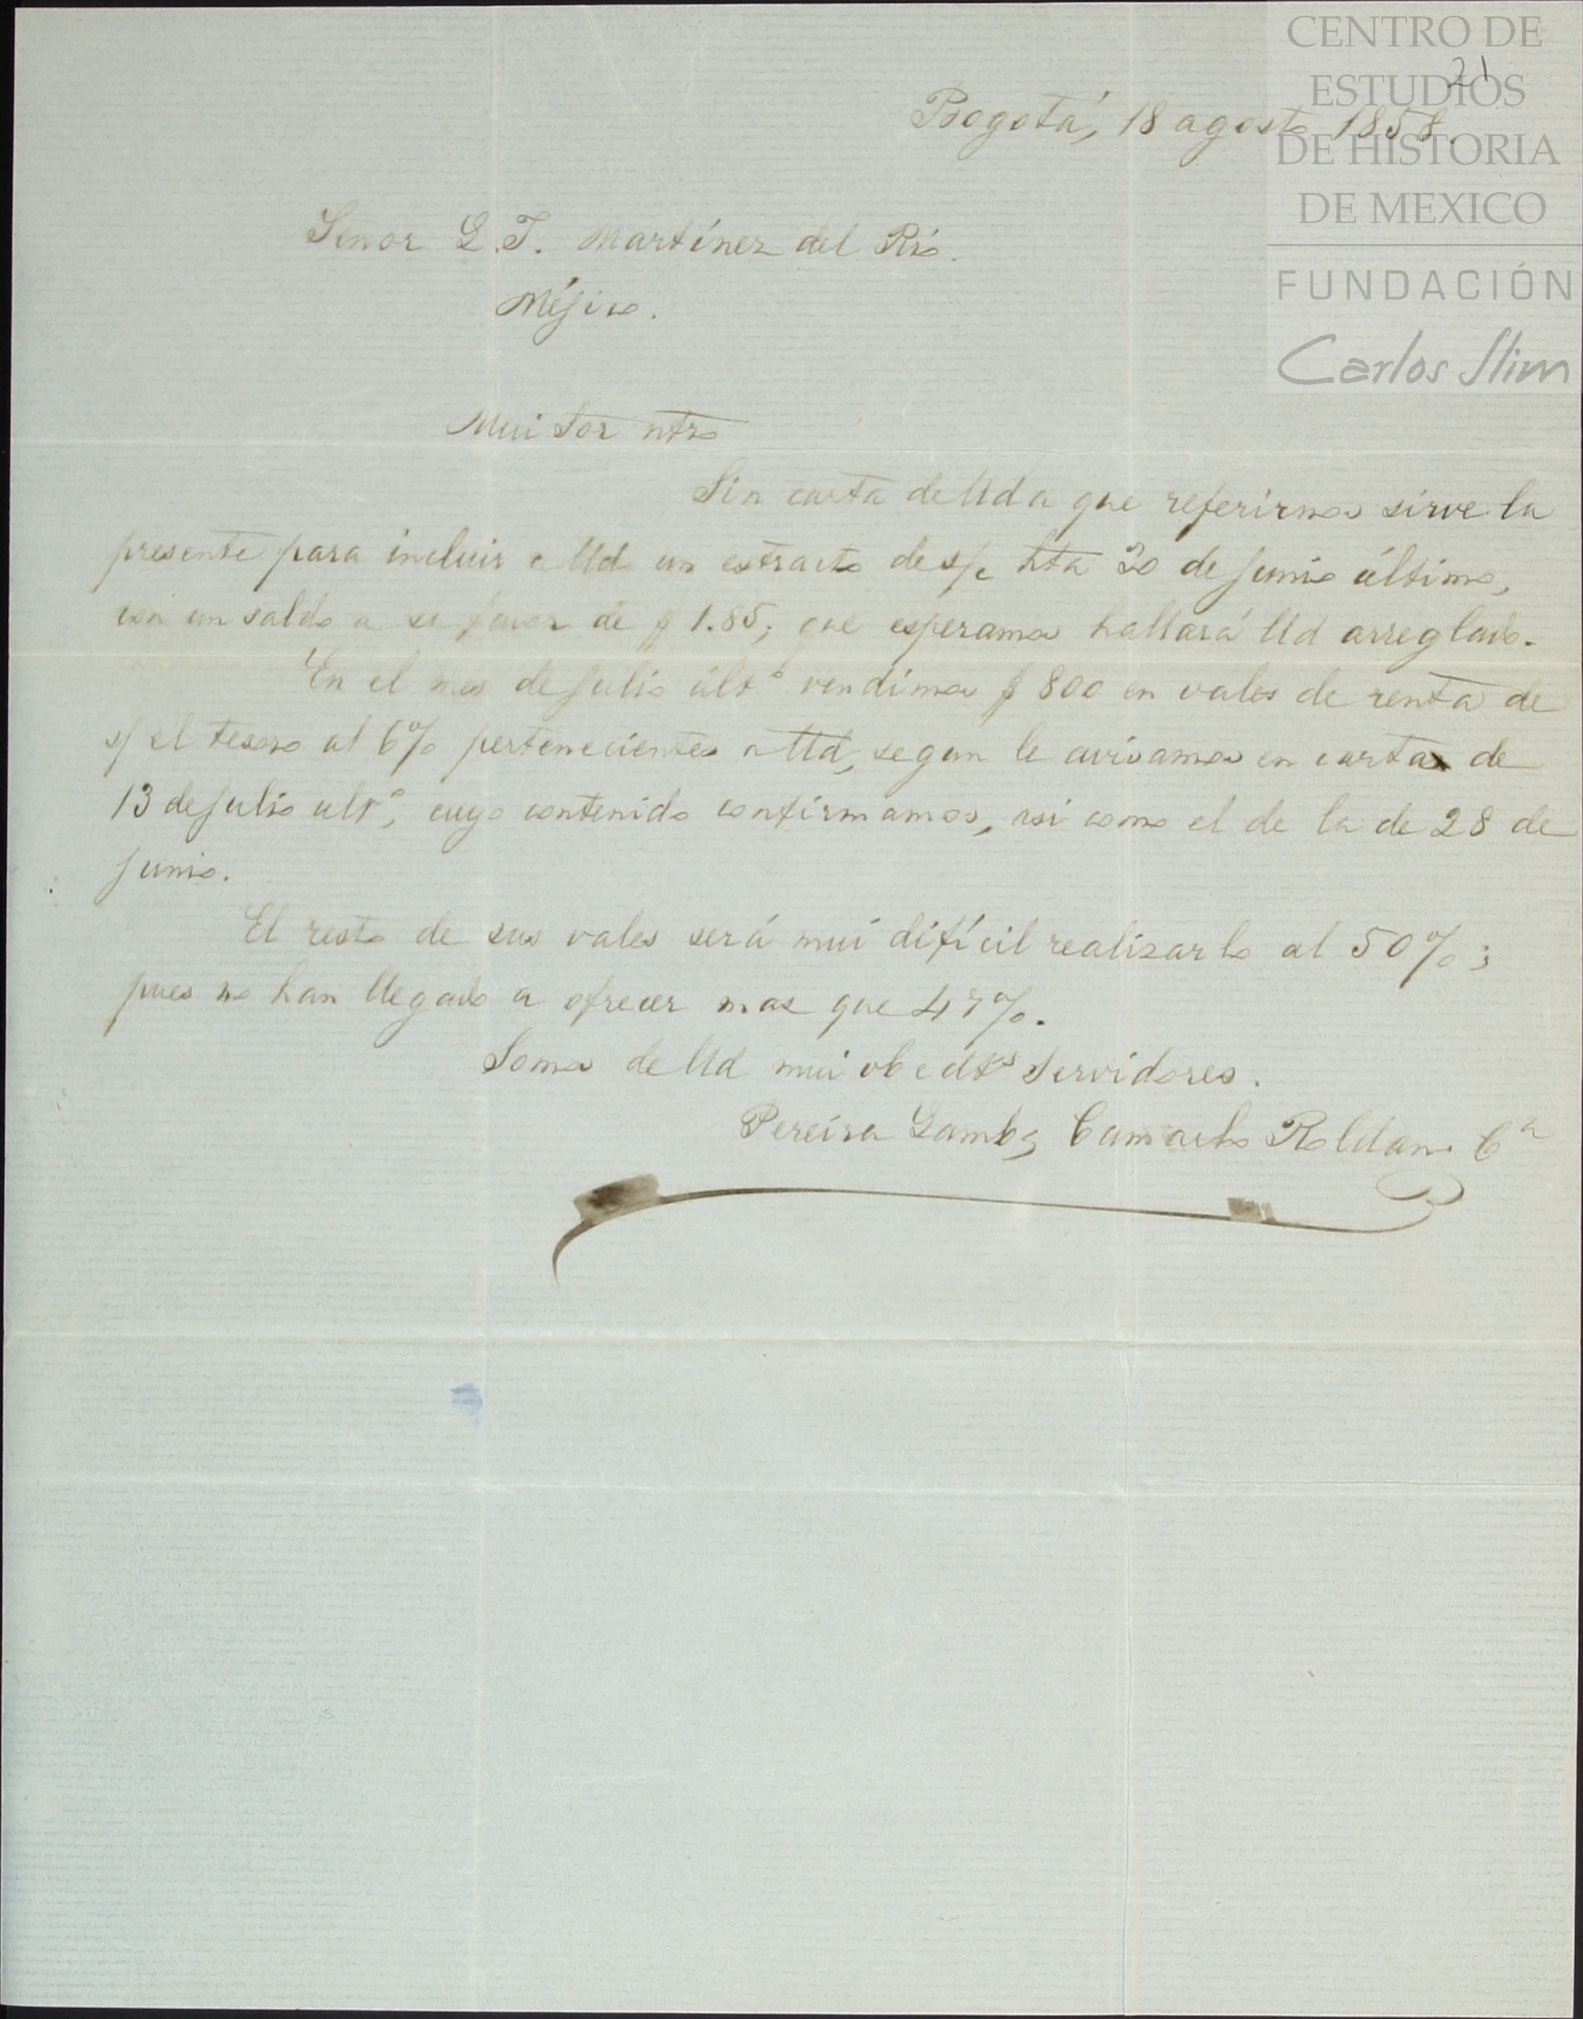 CENTRO DE
ESTUDIOS
DE HISTORIA
DE MEXICO
FUNDACIÓN
Carlos Slim
21
Bogotá, 18 agosto 1858.
Señor G. T. Martínez del Río.
Méjico.
Mui Sor ntro
Sin carta de Ud a que referirnos sirve la
presente para incluir a Ud un extracto de s/c hta 30 de junio último,
con un saldo a su favor de $ 1.85; que esperamos hallará Ud arreglado.
En el mes de julio últº vendimos $ 800 en vales de renta de
s/ el tesoro al 6% pertenecientes a Ud, segun le avisamos en carta de
13 de julio ultº, cuyo contenido confirmamos, asi como el de la de 28 de
junio.
El resto de sus vales será mui difícil realizarlo al 50%;
pues no han llegado a ofrecer mas que 47%.
Somos de Ud mui obedtes Servidores.
Pereira Gamba, Camacho Roldan Cª